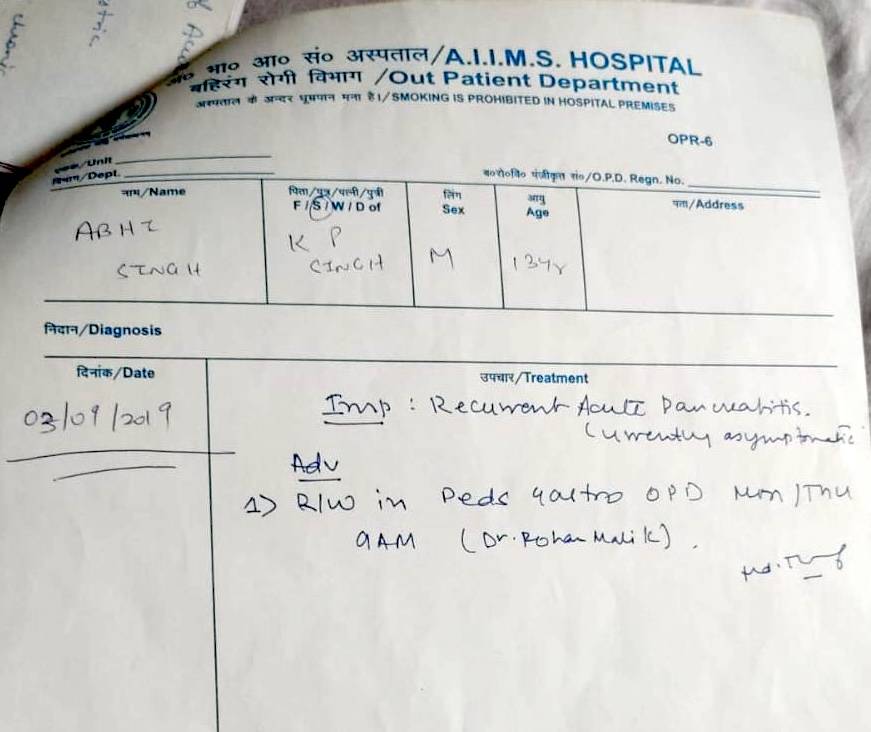 अ० भा० आ० सं० अस्पताल/A.I.I.M.S. HOSPITAL
बहिरंग रोगी विभाग /Out Patient Department
अस्पताल के अन्दर धूम्रपान मना है।/SMOKING IS PROHIBITED IN HOSPITAL PREMISES
OPR-6
एकक/Unit
विभाग/Dept.
ब०रो०वि० पंजीकृत सं०/O.P.D. Regn. No.
नाम/Name
पिता/पुत्र/पत्नी/पुत्री
F/S/W/D of
लिंग
Sex
आयु
Age
पता/Address
ABHI
SINGH
K P
SINGH
M
13yr
निदान/Diagnosis
दिनांक/Date
उपचार/Treatment
03/09/2019
Imp : Recurrent Acute Pancreatitis.
Currently asymptomatic
Adv
1) R/W in Peds Gastro OPD Mon/Thu
9AM (Dr. Rohan Malik).